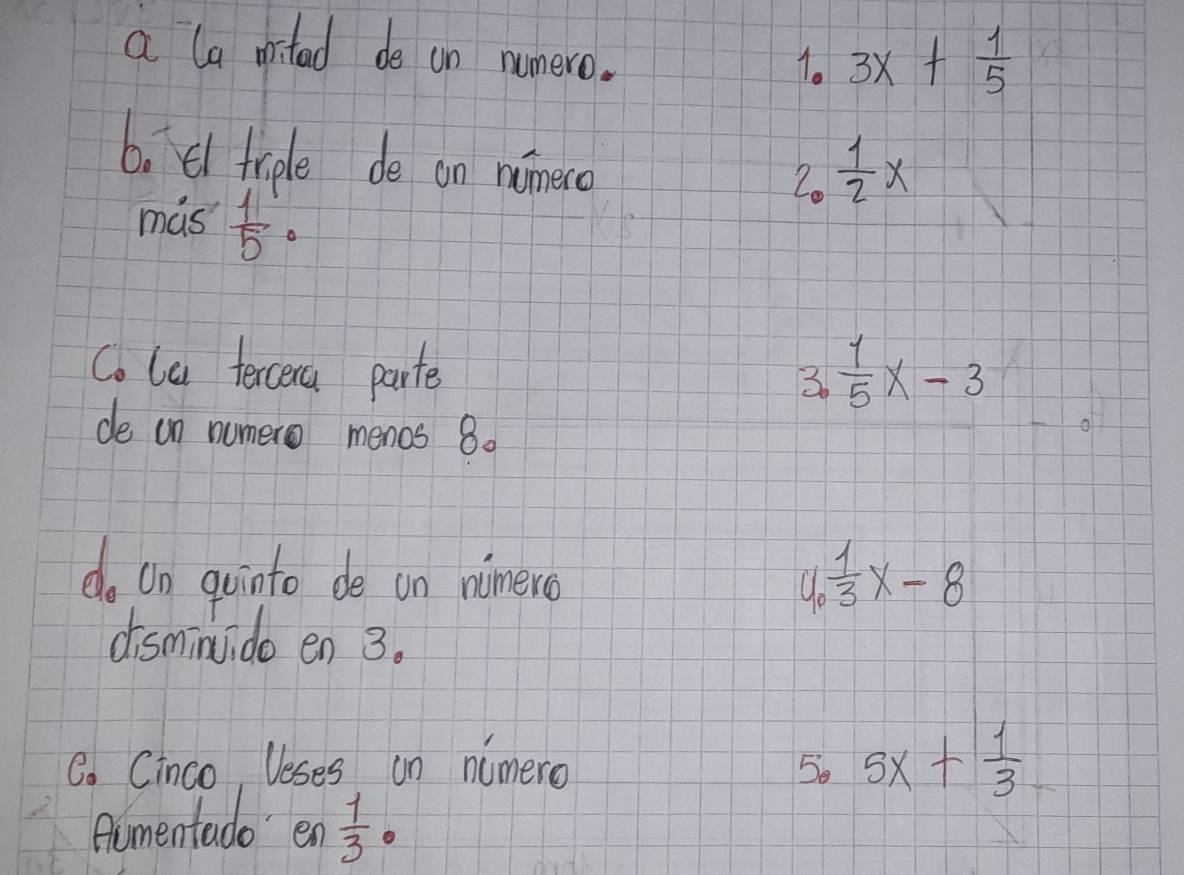 a La mitad de un numero.
1. 3x + 1/5
b. El triple de un número
más 1/5.
2. 1/2 x
C. La tercera parte
de un numero menos 8.
3. 1/5 x - 3
d. Un quinto de un número
disminuido en 3.
4. 1/3 x - 8
e. Cinco Veses un número
Aumentado en 1/3.
5. 5x + 1/3